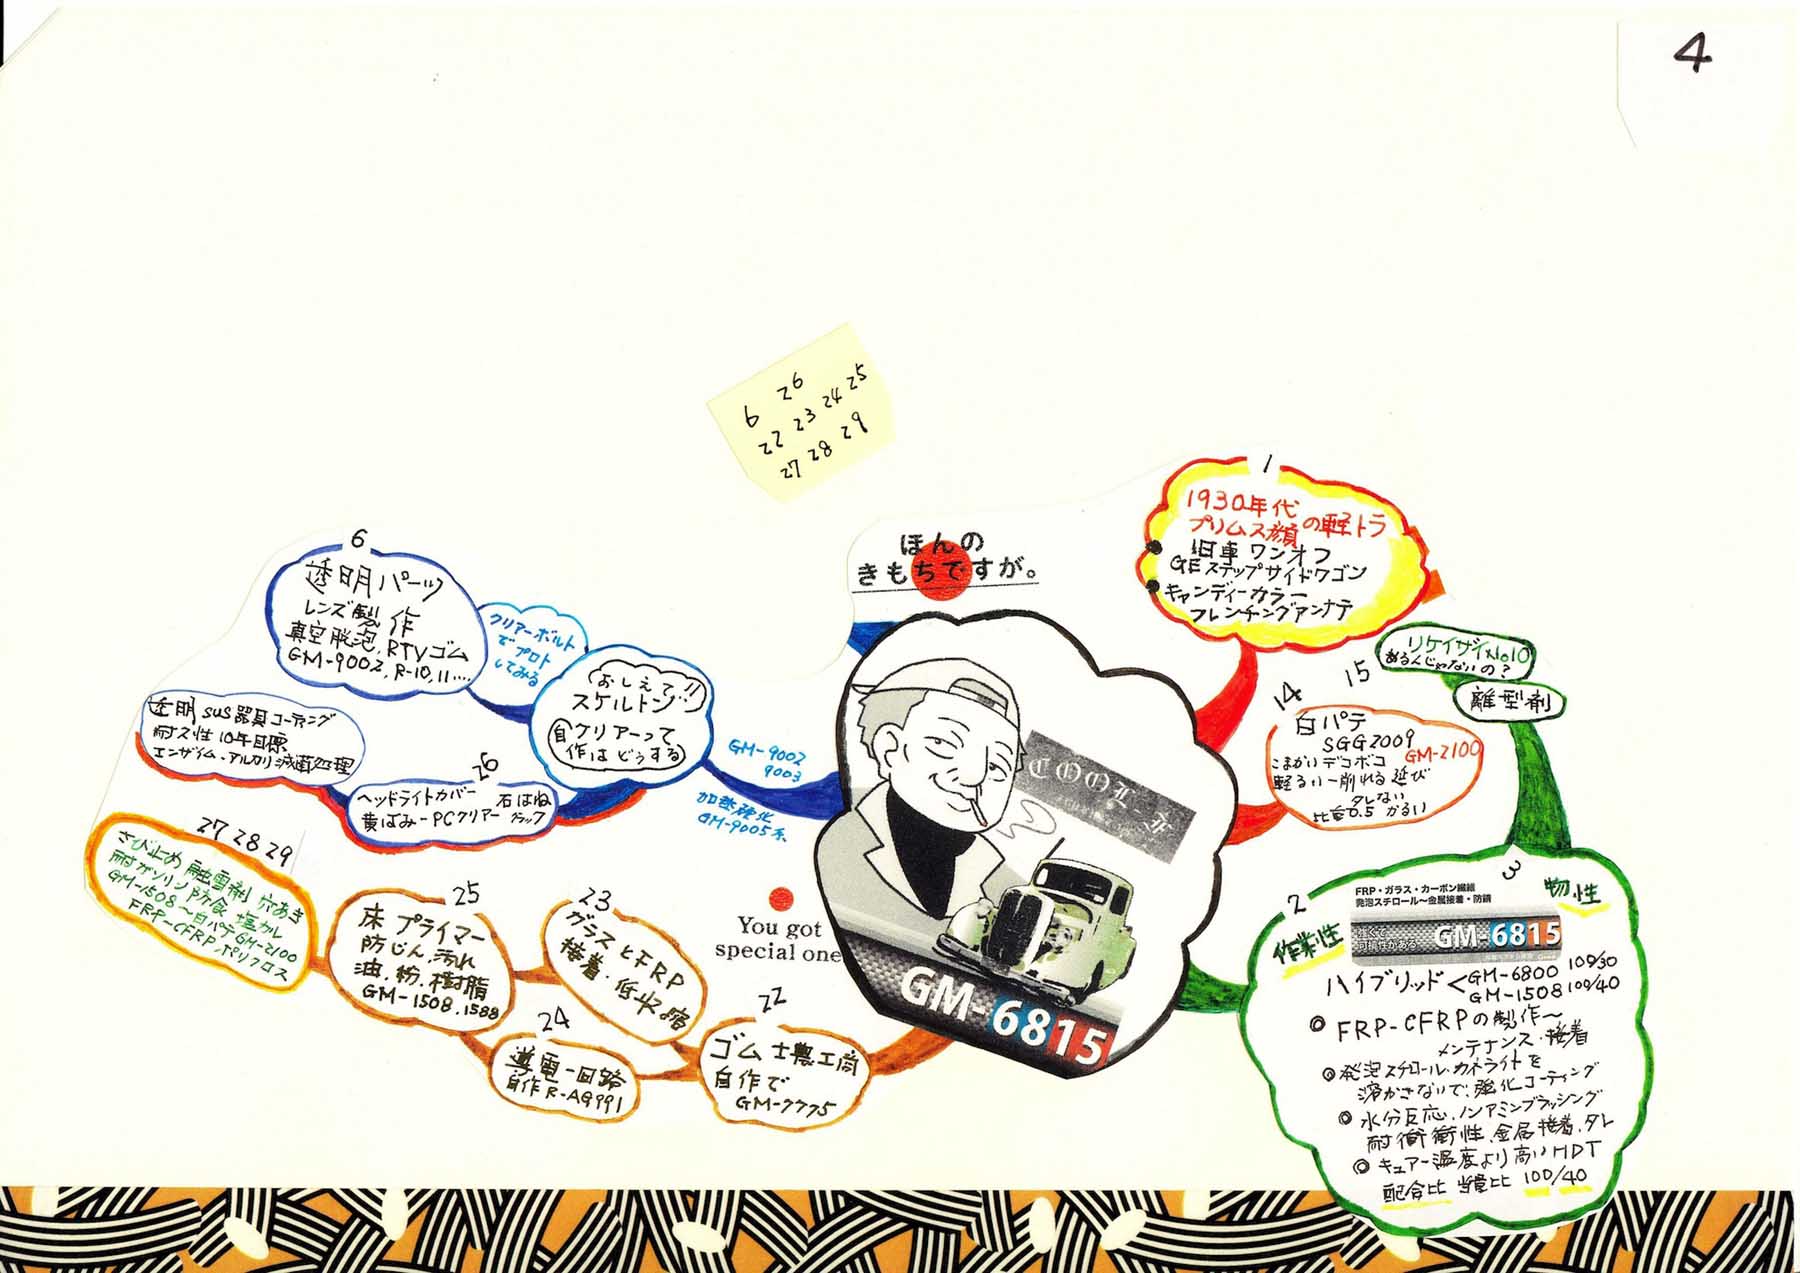 4
6 26
22 23 24 25
27 28 29
ほんの
きもちですが。
1
1930年代
プリムス顔の軽トラ
旧車ワンオフ
GEステップサイドワゴン
キャンディーカラー
フレンチングアンテナ
6
透明パーツ
レンズ製作
真空脱泡、RTVゴム
GM-9002, R-10, 11....
クリアーボルト
でプロト
してみる
おしえて!!
スケルトン
自クリアーって
作はどうする
GM-9002
9003
加熱硬化
GM-9005系
透明SUS器具コーティング
耐久性10年目標
エンザイム・アルカリ滅菌処理
26
ヘッドライトカバー 石はね
黄ばみーPCクリアー クラック
27 28 29
さび止め 融雪剤 穴あき
耐ガソリン防食 塩カル
GM-1508~白パテGM-2100
FRP-CFRPポリフロス
25
床プライマー
防じん、汚れ
油、粉、樹脂
GM-1508, 1588
23
ガラスとFRP
接着・低収縮
24
導電一回路
自作R-AG991
22
ゴム 士農工商
自作で
GM-7775
You got
special one
COOL
GM-6815
15
リケイザイNo.10
あるんじゃないの?
離型剤
14
白パテ
SGG2009
GM-2100
こまかいデコボコ
軽るいー削れる 延び
タレない
比重0.5 かるい
2
作業性
3
物性
FRP・ガラス・カーボン繊維
発泡スチロール〜金属接着・防錆
強くて
可撓性がある
GM-6815
ハイブリッド<GM-6800 100/30
GM-1508 100/40
◎ FRP-CFRPの製作~
メンテナンス・接着
◎発泡スチロール・カネライトを
溶かさないで、強化コーティング
◎ 水分反応、ノンアミンブラッシング
耐衝撃性、金属接着、タレ
◎ キュアー温度より高いHDT
配合比 当量比 100/40